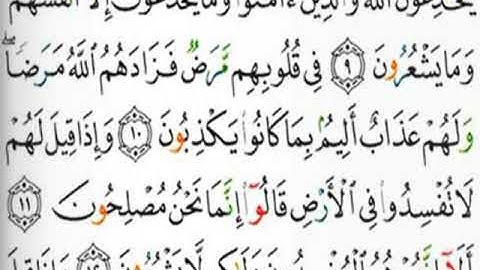 يُخَٰدِعُونَ ٱللَّهَ وَٱلَّذِينَ ءَامَنُوا۟ وَمَا يَخْدَعُونَ إِلَّآ أَنفُسَهُمْ
وَمَا يَشْعُرُونَ ٩ فِى قُلُوبِهِم مَّرَضٌ فَزَادَهُمُ ٱللَّهُ مَرَضًا ۖ
وَلَهُمْ عَذَابٌ أَلِيمٌۢ بِمَا كَانُوا۟ يَكْذِبُونَ ١٠ وَإِذَا قِيلَ لَهُمْ
لَا تُفْسِدُوا۟ فِى ٱلْأَرْضِ قَالُوٓا۟ إِنَّمَا نَحْنُ مُصْلِحُونَ ١١
أَلَآ إِنَّهُمْ هُمُ ٱلْمُفْسِدُونَ وَلَٰكِن لَّا يَشْعُرُونَ ١٢ وَإِذَا قِيلَ